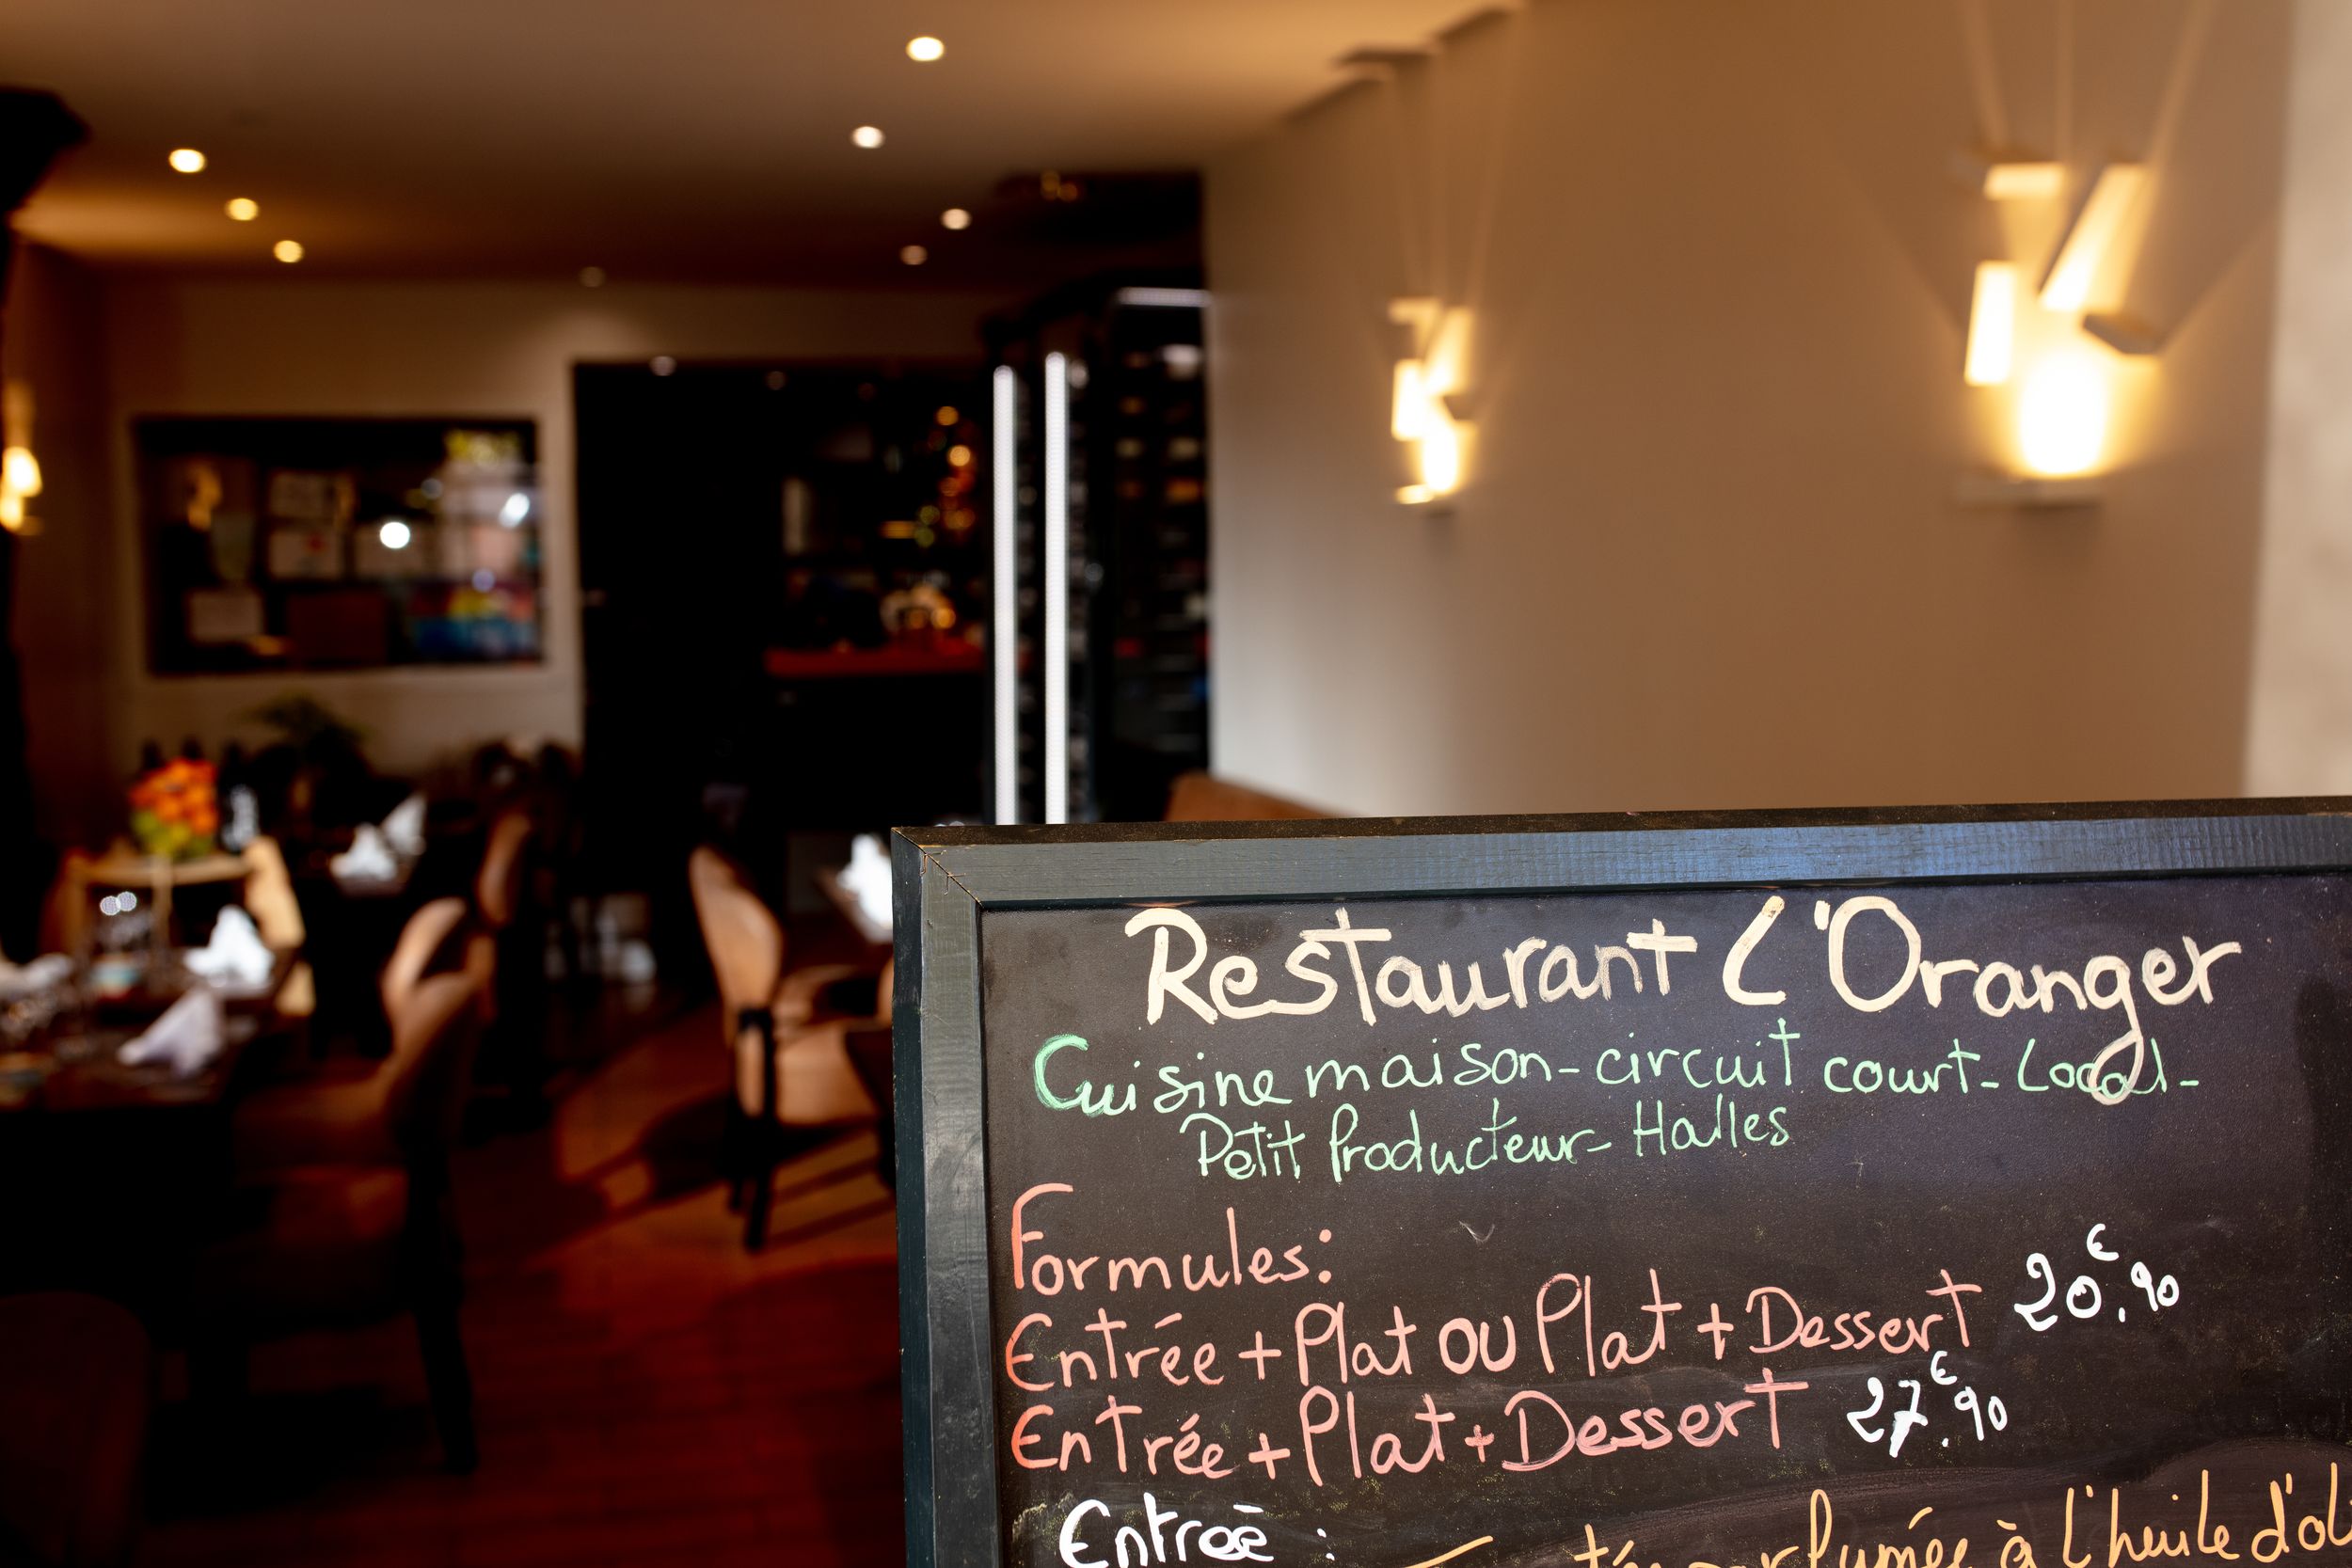 Restaurant L'Oranger
Cuisine maison - circuit court - Local -
Petit Producteur - Halles
Formules:
Entrée + Plat ou Plat + Dessert 20€.90
Entrée + Plat + Dessert 27€.90
Entreé :
parfumée à l'huile d'ol